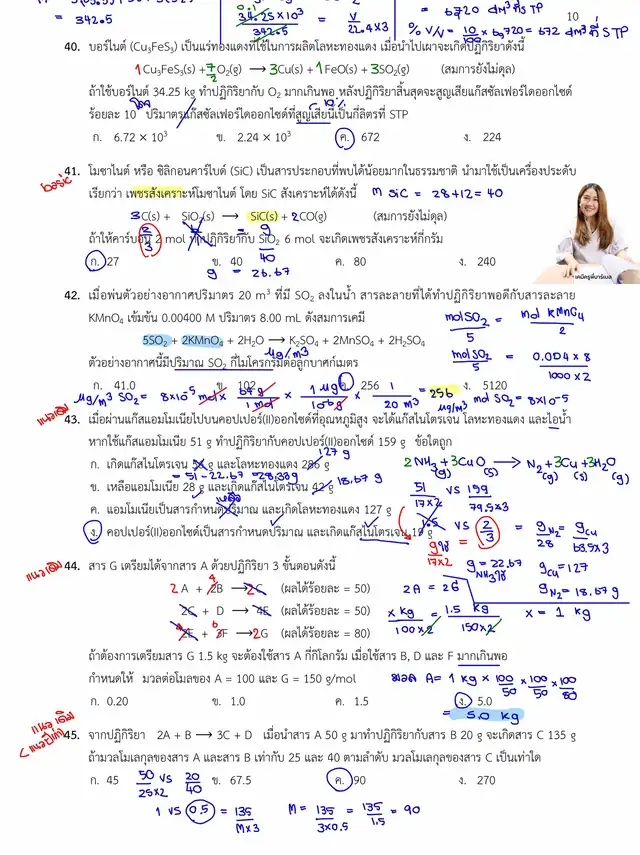 = 342.5
34.25 x 10³ / 342.5 = V / 22.4 x 3
= 6720 dm³ ที่ STP
% V/V = 10/100 x 6720 = 672 dm³ ที่ STP
10
40. บอร์ไนต์ (Cu₃FeS₃) เป็นแร่ทองแดงที่ใช้ในการผลิตโลหะทองแดง เมื่อนำไปเผาจะเกิดปฏิกิริยาดังนี้
1Cu₃FeS₃(s) + 7/2 O₂(g) ⟶ 3Cu(s) + 1FeO(s) + 3SO₂(g) (สมการยังไม่ดุล)
ถ้าใช้บอร์ไนต์ 34.25 kg ทำปฏิกิริยากับ O₂ มากเกินพอ หลังปฏิกิริยาสิ้นสุดจะสูญเสียแก๊สซัลเฟอร์ไดออกไซด์
ร้อยละ 10 โดยปริมาตรแก๊สซัลเฟอร์ไดออกไซด์ที่สูญเสียนี้เป็นกี่ลิตรที่ STP
ก. 6.72 × 10³ ข. 2.24 × 10³ ค. 672 ง. 224
41. โมซาไนต์ หรือ ซิลิกอนคาร์ไบด์ (SiC) เป็นสารประกอบที่พบได้น้อยมากในธรรมชาติ นำมาใช้เป็นเครื่องประดับ
basic
เรียกว่า เพชรสังเคราะห์โมซาไนต์ โดย SiC สังเคราะห์ได้ดังนี้ M SiC = 28+12 = 40
3C(s) + SiO₂(s) ⟶ SiC(s) + 2CO(g) (สมการยังไม่ดุล)
2/3 = g/40
ถ้าให้คาร์บอน 2 mol ทำปฏิกิริยากับ SiO₂ 6 mol จะเกิดเพชรสังเคราะห์กี่กรัม
ก. 27 ข. 40 ค. 80 ง. 240
g = 26.67
เคมีครูพี่บาร์เมล
42. เมื่อพ่นตัวอย่างอากาศปริมาตร 20 m³ ที่มี SO₂ ลงในน้ำ สารละลายที่ได้ทำปฏิกิริยาพอดีกับสารละลาย
KMnO₄ เข้มข้น 0.00400 M ปริมาตร 8.00 mL ดังสมการเคมี
molSO₂/5 = mol KMnO₄/2
5SO₂ + 2KMnO₄ + 2H₂O ⟶ K₂SO₄ + 2MnSO₄ + 2H₂SO₄
molSO₂/5 = 0.004 x 8 / 1000 x 2
µg/m³
ตัวอย่างอากาศนี้มีปริมาณ SO₂ กี่ไมโครกรัมต่อลูกบาศก์เมตร
ก. 41.0 ข. 102 ค. 256 ง. 5120
mol SO₂ = 8x10⁻⁵
µg/m³ SO₂ = 8x10⁻⁵ mol x 64 g/1 mol x 1 µg/10⁻⁶ g x 1/20 m³ = 256 µg/m³
แนวเดิม
43. เมื่อผ่านแก๊สแอมโมเนียไปบนคอปเปอร์(II)ออกไซด์ที่อุณหภูมิสูง จะได้แก๊สไนโตรเจน โลหะทองแดง และไอน้ำ
หากใช้แก๊สแอมโมเนีย 51 g ทำปฏิกิริยากับคอปเปอร์(II)ออกไซด์ 159 g ข้อใดถูก
127 g
ก. เกิดแก๊สไนโตรเจน 56 g และโลหะทองแดง 286 g
2NH₃(g) + 3CuO(s) ⟶ N₂(g) + 3Cu(s) + 3H₂O(g)
= 51 - 22.67 = 28.33g 18.67 g
ข. เหลือแอมโมเนีย 28 g และเกิดแก๊สไนโตรเจน 42 g
51/17x2 vs 159/79.5x3
ค. แอมโมเนียเป็นสารกำหนดปริมาณ และเกิดโลหะทองแดง 127 g
ง. คอปเปอร์(II)ออกไซด์เป็นสารกำหนดปริมาณ และเกิดแก๊สไนโตรเจน 19 g
1.5 vs 2/3 = gN₂/28 = gCu/63.5x3
gใช้/17x2 = g = 22.67 NH₃ใช้
gCu = 127
gN₂ = 18.67 g
แนวเดิม
44. สาร G เตรียมได้จากสาร A ด้วยปฏิกิริยา 3 ขั้นตอนดังนี้
2A + 2B ⟶ 2C (ผลได้ร้อยละ = 50) 2A = 2G
2C + D ⟶ 4E (ผลได้ร้อยละ = 50)
2E + 3F ⟶ 2G (ผลได้ร้อยละ = 80)
x kg/100x2 = 1.5 kg/150x2 x = 1 kg
ถ้าต้องการเตรียมสาร G 1.5 kg จะต้องใช้สาร A กี่กิโลกรัม เมื่อใช้สาร B, D และ F มากเกินพอ
กำหนดให้ มวลต่อโมลของ A = 100 และ G = 150 g/mol
มวล A = 1 kg x 100/50 x 100/50 x 100/80
ก. 0.20 ข. 1.0 ค. 1.5 ง. 5.0
= 5.0 kg
แนวเดิม
45. จากปฏิกิริยา 2A + B ⟶ 3C + D เมื่อนำสาร A 50 g มาทำปฏิกิริยากับสาร B 20 g จะเกิดสาร C 135 g
ถ้ามวลโมเลกุลของสาร A และสาร B เท่ากับ 25 และ 40 ตามลำดับ มวลโมเลกุลของสาร C เป็นเท่าใด
ก. 45 ข. 67.5 ค. 90 ง. 270
50/25x2 vs 20/40
1 vs 0.5 = 135/Mx3 M = 135/3x0.5 = 135/1.5 = 90